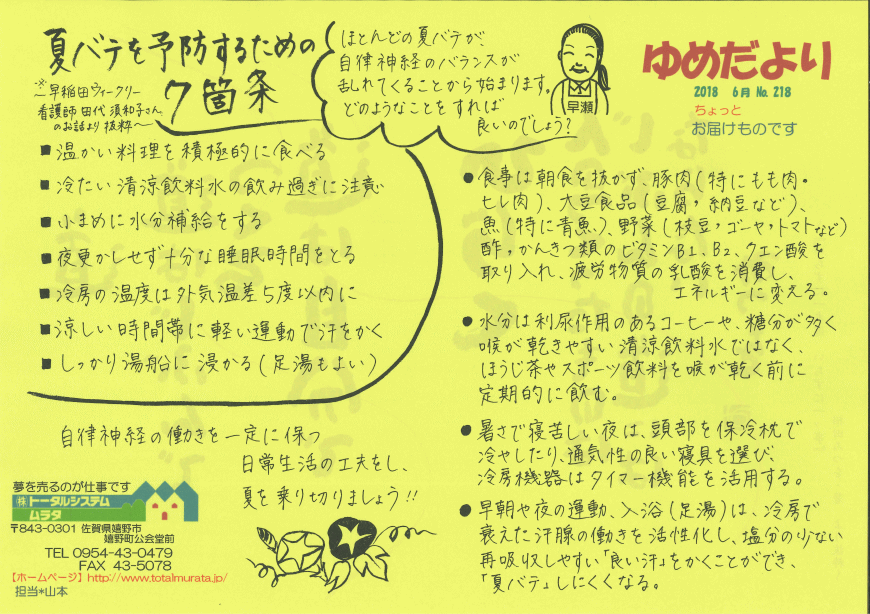 夏バテを予防するための
7箇条
※
〜早稲田ウィークリー
看護師 田代 須和子さん
のお話より 抜粋〜
ほとんどの夏バテが、
自律神経のバランスが
乱れてくることから始まります。
どのようなことをすれば
良いのでしょう?
早瀬
ゆめだより
2018 6月 No. 218
ちょっと
お届けものです
■ 温かい料理を積極的に食べる
■ 冷たい清涼飲料水の飲み過ぎに注意
■ 小まめに水分補給をする
■ 夜更かしせず十分な睡眠時間をとる
■ 冷房の温度は外気温差5度以内に
■ 涼しい時間帯に軽い運動で汗をかく
■ しっかり湯船に浸かる(足湯もよい)
自律神経の働きを一定に保つ
日常生活の工夫をし、
夏を乗り切りましょう!!
● 食事は朝食を抜かず、豚肉(特にもも肉・
ヒレ肉)、大豆食品(豆腐・納豆など)、
魚(特に青魚)、野菜(枝豆・ゴーヤ・トマトなど)
酢・かんきつ類のビタミンB1、B2、クエン酸を
取り入れ、疲労物質の乳酸を消費し、
エネルギーに変える。
● 水分は利尿作用のあるコーヒーや、糖分が多く
喉が乾きやすい清涼飲料水ではなく、
ほうじ茶やスポーツ飲料を喉が乾く前に
定期的に飲む。
● 暑さで寝苦しい夜は、頭部を保冷枕で
冷やしたり、通気性の良い寝具を選び、
冷房機器はタイマー機能を活用する。
● 早朝や夜の運動、入浴(足湯)は、冷房で
衰えた汗腺の働きを活性化し、塩分の少ない
再吸収しやすい「良い汗」をかくことができ、
「夏バテ」しにくくなる。
夢を売るのが仕事です
㈱トータルシステム
ムラタ
〒843-0301 佐賀県嬉野市
嬉野町公会堂前
TEL 0954-43-0479
FAX 43-5078
【ホームページ】http://www.totalmurata.jp/
担当*山本